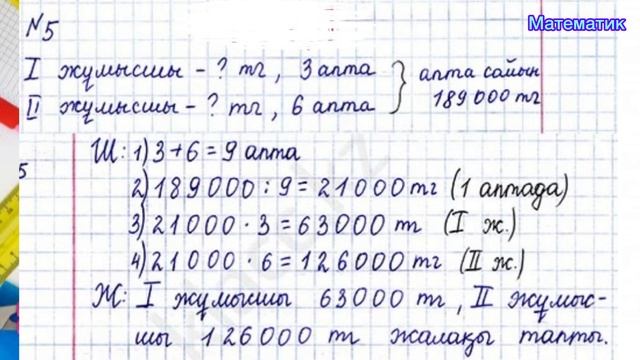 Математик
№5
I жұмысшы - ? тг, 3 апта } апта сайын
II жұмысшы - ? тг, 6 апта } 189 000 тг
5
Ш: 1) 3 + 6 = 9 апта
2) 189000 : 9 = 21000 тг (1 аптада)
3) 21000 · 3 = 63000 тг (I ж.)
4) 21000 · 6 = 126000 тг (II ж.)
Ж: I жұмысшы 63000 тг, II жұмыс-
шы 126000 тг жалақы тапты.